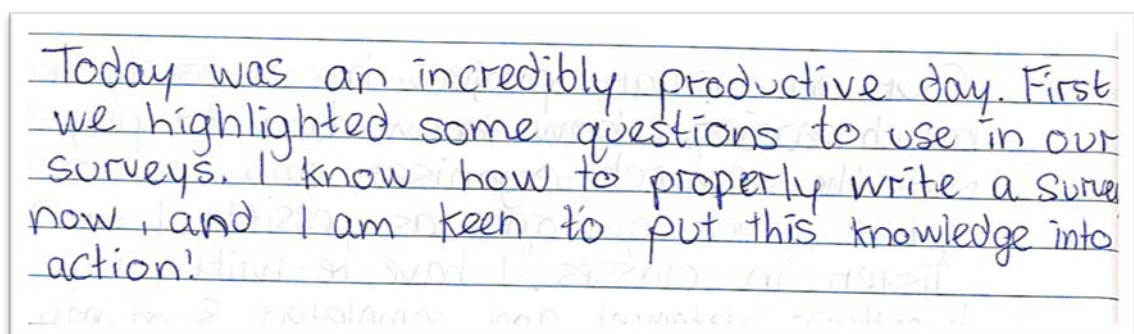 Today was an incredibly productive day. First
we highlighted some questions to use in our
surveys. I know how to properly write a surve
now, and I am keen to put this knowledge into
action!